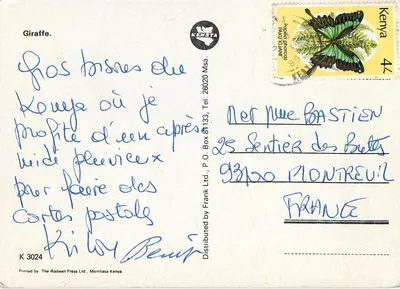 Giraffe.
Gros bisous du
Kenya où je
profite d'un après
midi pluvieux
pour faire des
cartes postales
K 3024
Printed by The Rodwell Press Ltd., Mombasa Kenya
Distributed by Frank Ltd., P.O. Box 81133, Tel: 26020 Msa.
Kenya
4/-
Mme BASTIEN
25 Sentier des Buttes
93100 MONTREUIL
FRANCE